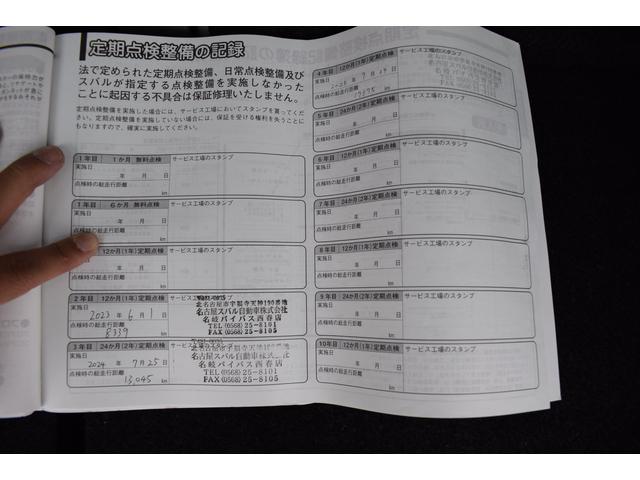 定期点検整備の記録
法で定められた定期点検整備、日常点検整備及び
スバルが指定する点検整備を実施しなかった
ことに起因する不具合は保証修理いたしません。
定期点検整備を実施した場合には、サービス工場においてスタンプを貰ってくだ
さい。定期点検整備を実施していない場合には、保証を受ける権利を失うことに
もなりますので、確実に実施してください。
1年目 1か月 無料点検 サービス工場のスタンプ
実施日
年 月 日
点検時の総走行距離
km
1年目 6か月 無料点検 サービス工場のスタンプ
実施日
年 月 日
点検時の総走行距離
km
12か月(1年)定期点検 サービス工場のスタンプ
実施日
年 月 日
点検時の総走行距離
km
2年目 12か月(1年)定期点検 サービス工場のスタンプ
実施日
2023年 6月 1日
点検時の総走行距離
8339 km
名古屋スバル自動車株式会社
名岐バイパス西春店
TEL(0568)25-8101
FAX(0568)25-8105
3年目 24か月(2年)定期点検 サービス工場のスタンプ
実施日
2024年 7月25日
点検時の総走行距離
13,045 km
名古屋スバル自動車株式会社
名岐バイパス西春店
TEL(0568)25-8101
FAX(0568)25-8105
4年目 12か月(1年)定期点検 サービス工場のスタンプ
実施日
年 7月 日
点検時の総走行距離
km
5年目 24か月(2年)定期点検 サービス工場のスタンプ
実施日
年 月 日
点検時の総走行距離
km
6年目 12か月(1年)定期点検 サービス工場のスタンプ
実施日
年 月 日
点検時の総走行距離
km
7年目 24か月(2年)定期点検 サービス工場のスタンプ
実施日
年 月 日
点検時の総走行距離
km
8年目 12か月(1年)定期点検 サービス工場のスタンプ
実施日
年 月 日
点検時の総走行距離
km
9年目 24か月(2年)定期点検 サービス工場のスタンプ
実施日
年 月 日
点検時の総走行距離
km
10年目 12か月(1年)定期点検 サービス工場のスタンプ
実施日
年 月 日
点検時の総走行距離
km